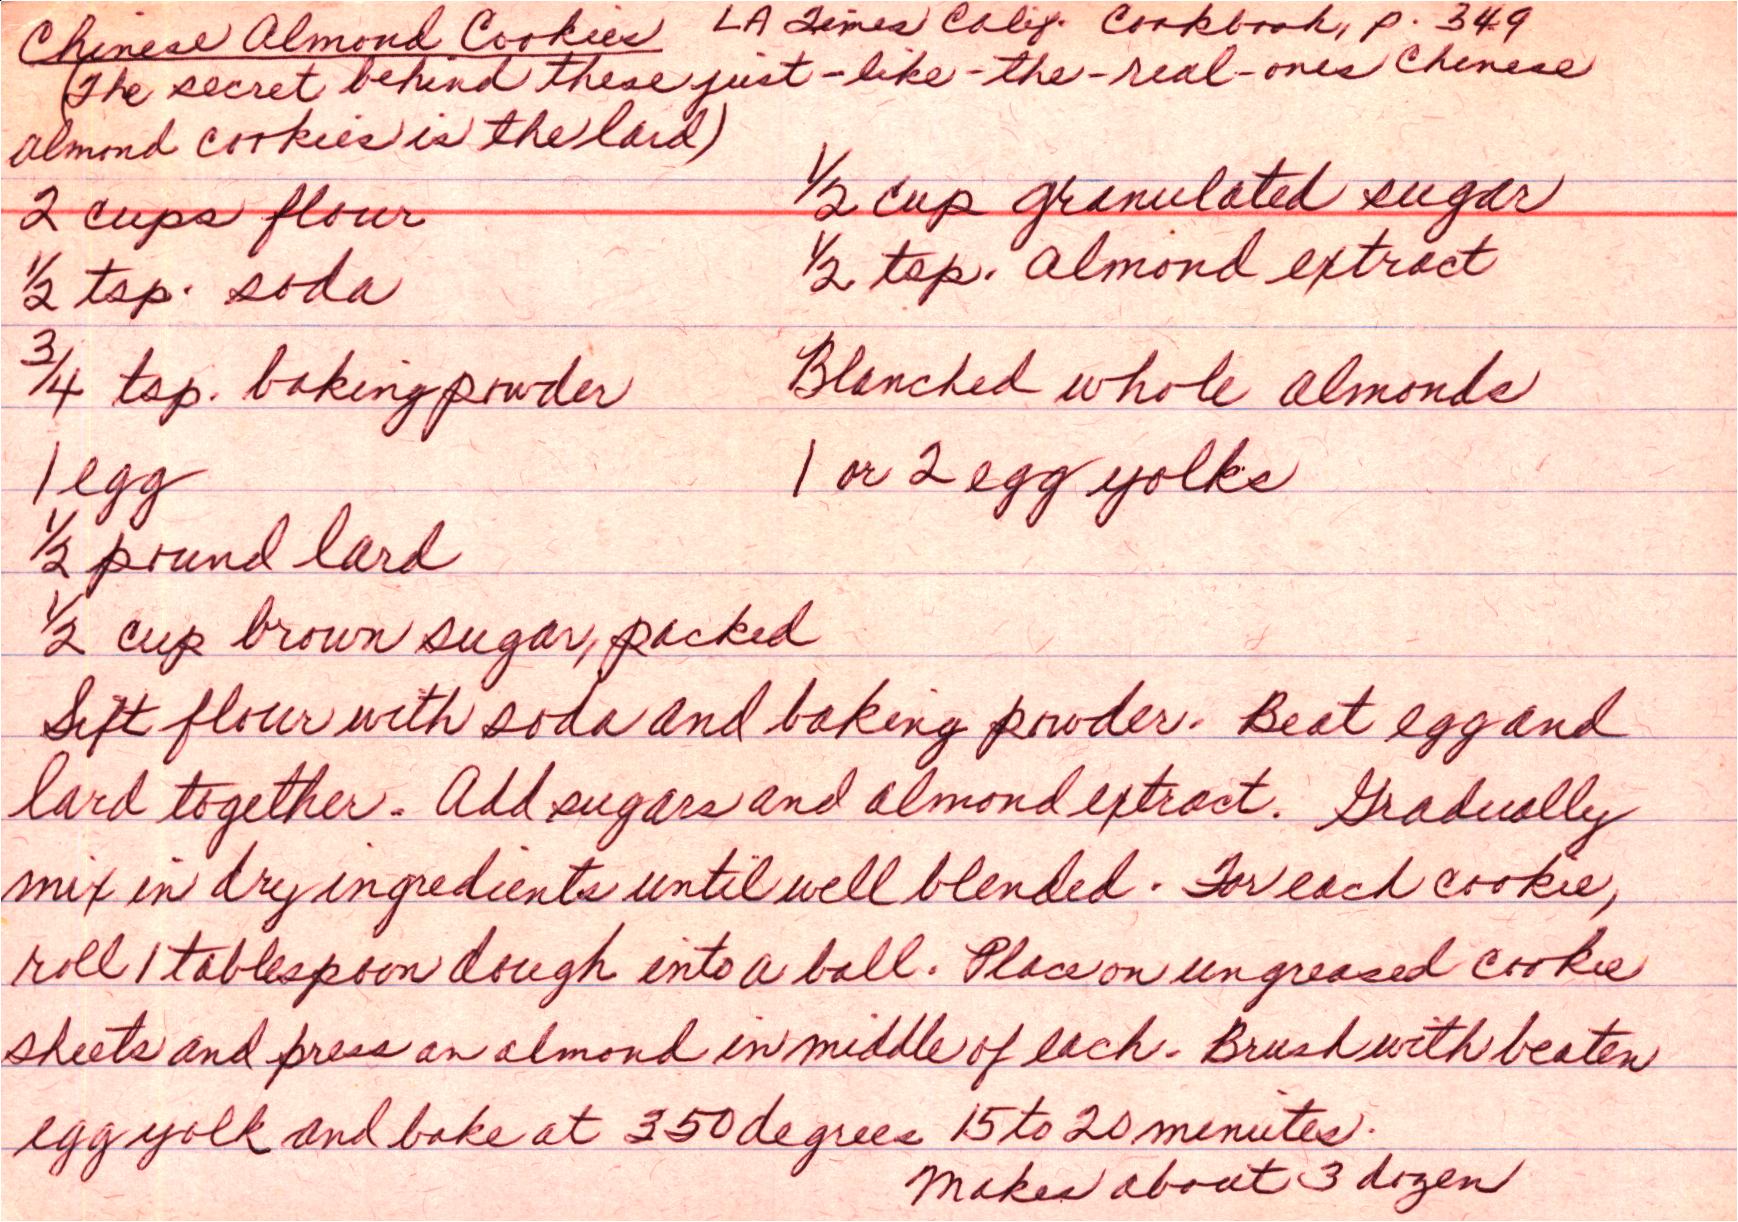 Chinese Almond Cookies LA Times Calif. Cookbook, p. 349
(The secret behind these just-like-the-real-ones Chinese
almond cookies is the lard)
2 cups flour
1/2 cup granulated sugar
1/2 tsp. soda
1/2 tsp. almond extract
3/4 tsp. baking powder
Blanched whole almonds
1 egg
1 or 2 egg yolks
1/2 pound lard
1/2 cup brown sugar, packed
Sift flour with soda and baking powder. Beat egg and
lard together. Add sugars and almond extract. Gradually
mix in dry ingredients until well blended. For each cookie,
roll 1 tablespoon dough into a ball. Place on ungreased cookie
sheets and press an almond in middle of each. Brush with beaten
egg yolk and bake at 350 degrees 15 to 20 minutes.
Makes about 3 dozen